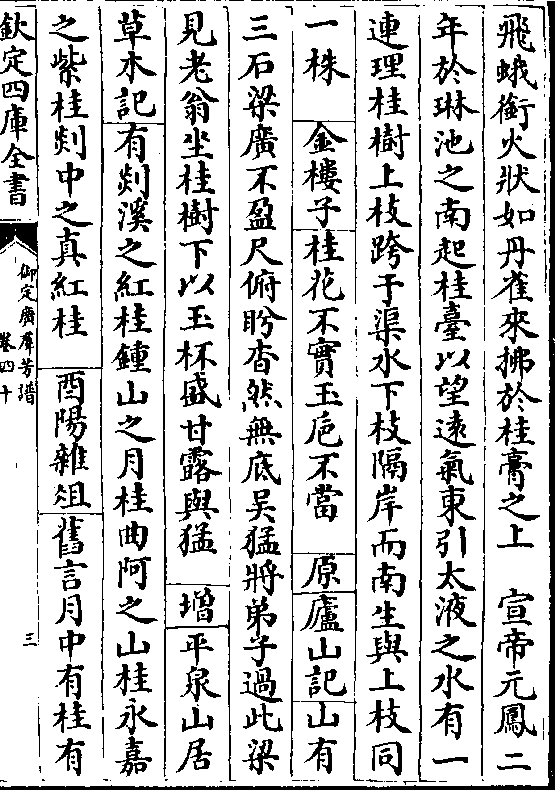 飛蛾銜火狀如丹雀來拂於桂膏之上　宣帝元鳳二
年於琳池之南起桂臺以望遠氣東引太液之水有一
連理桂樹上枝跨于渠水下枝隔岸而南生與上枝同
一株　金樓子桂花不實玉巵不當　原廬山記山有
三石梁廣不盈尺俯盻杳然無底吳猛將弟子過此梁
見老翁坐桂樹下以玉杯盛甘露與猛　增平泉山居
草木記有剡溪之紅桂鍾山之月桂曲阿之山桂永嘉
之紫桂剡中之真紅桂　酉陽雜俎舊言月中有桂有
欽定四庫全書
御定廣羣芳譜
卷四十
三